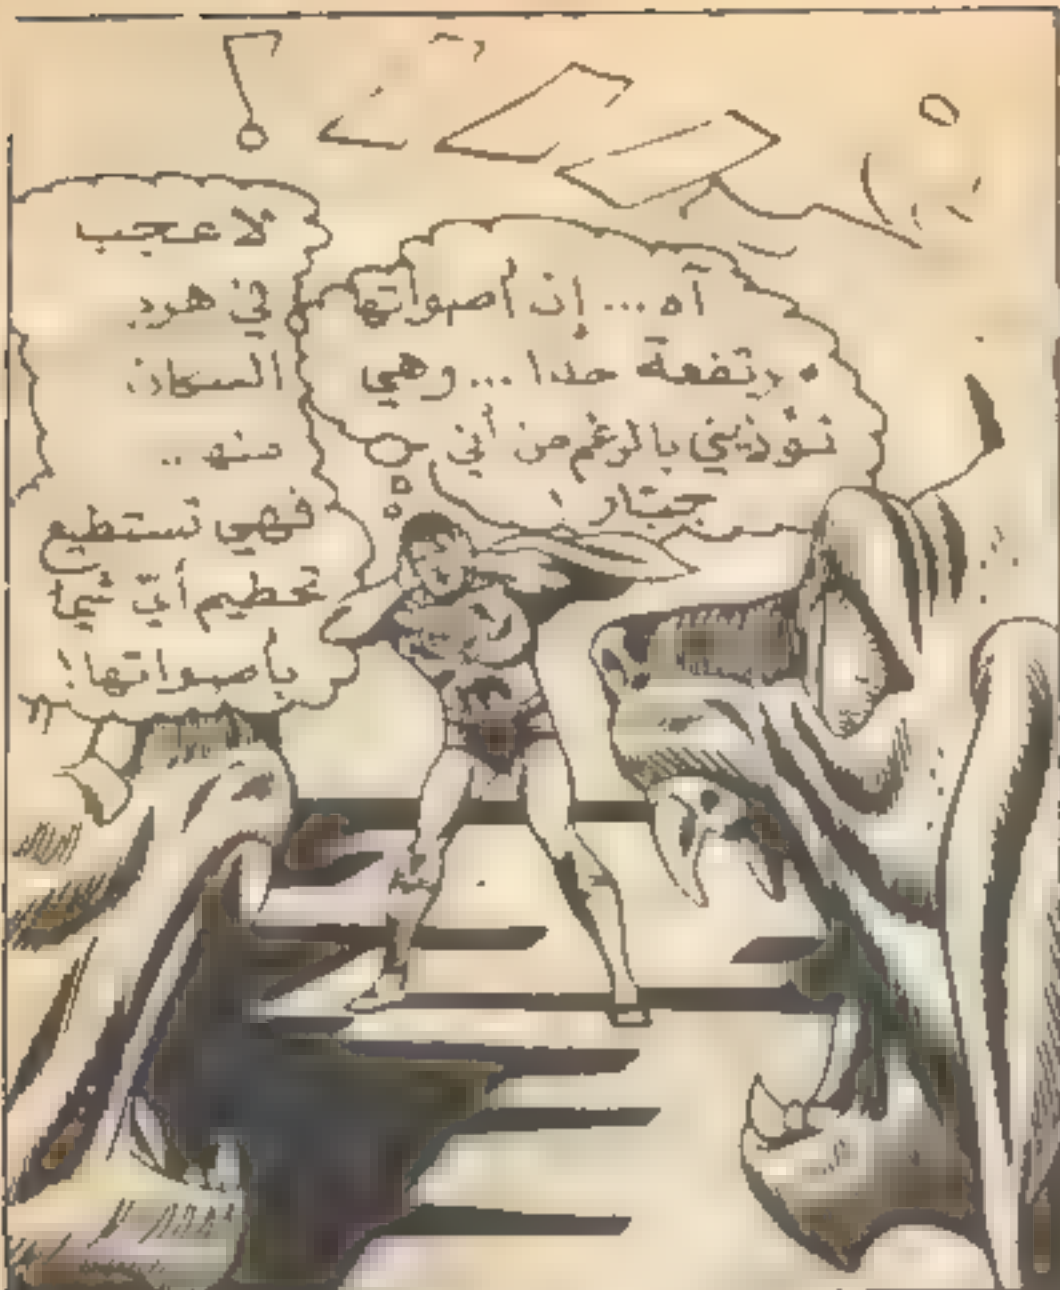 آه... إن أصواتها
مرتفعة جدا... وهي
تؤذيني بالرغم من أني
جبّار!
لا عجب
في هرب
السكان
منها..
فهي تستطيع
تحطيم أيّ شيء
بأصواتها!